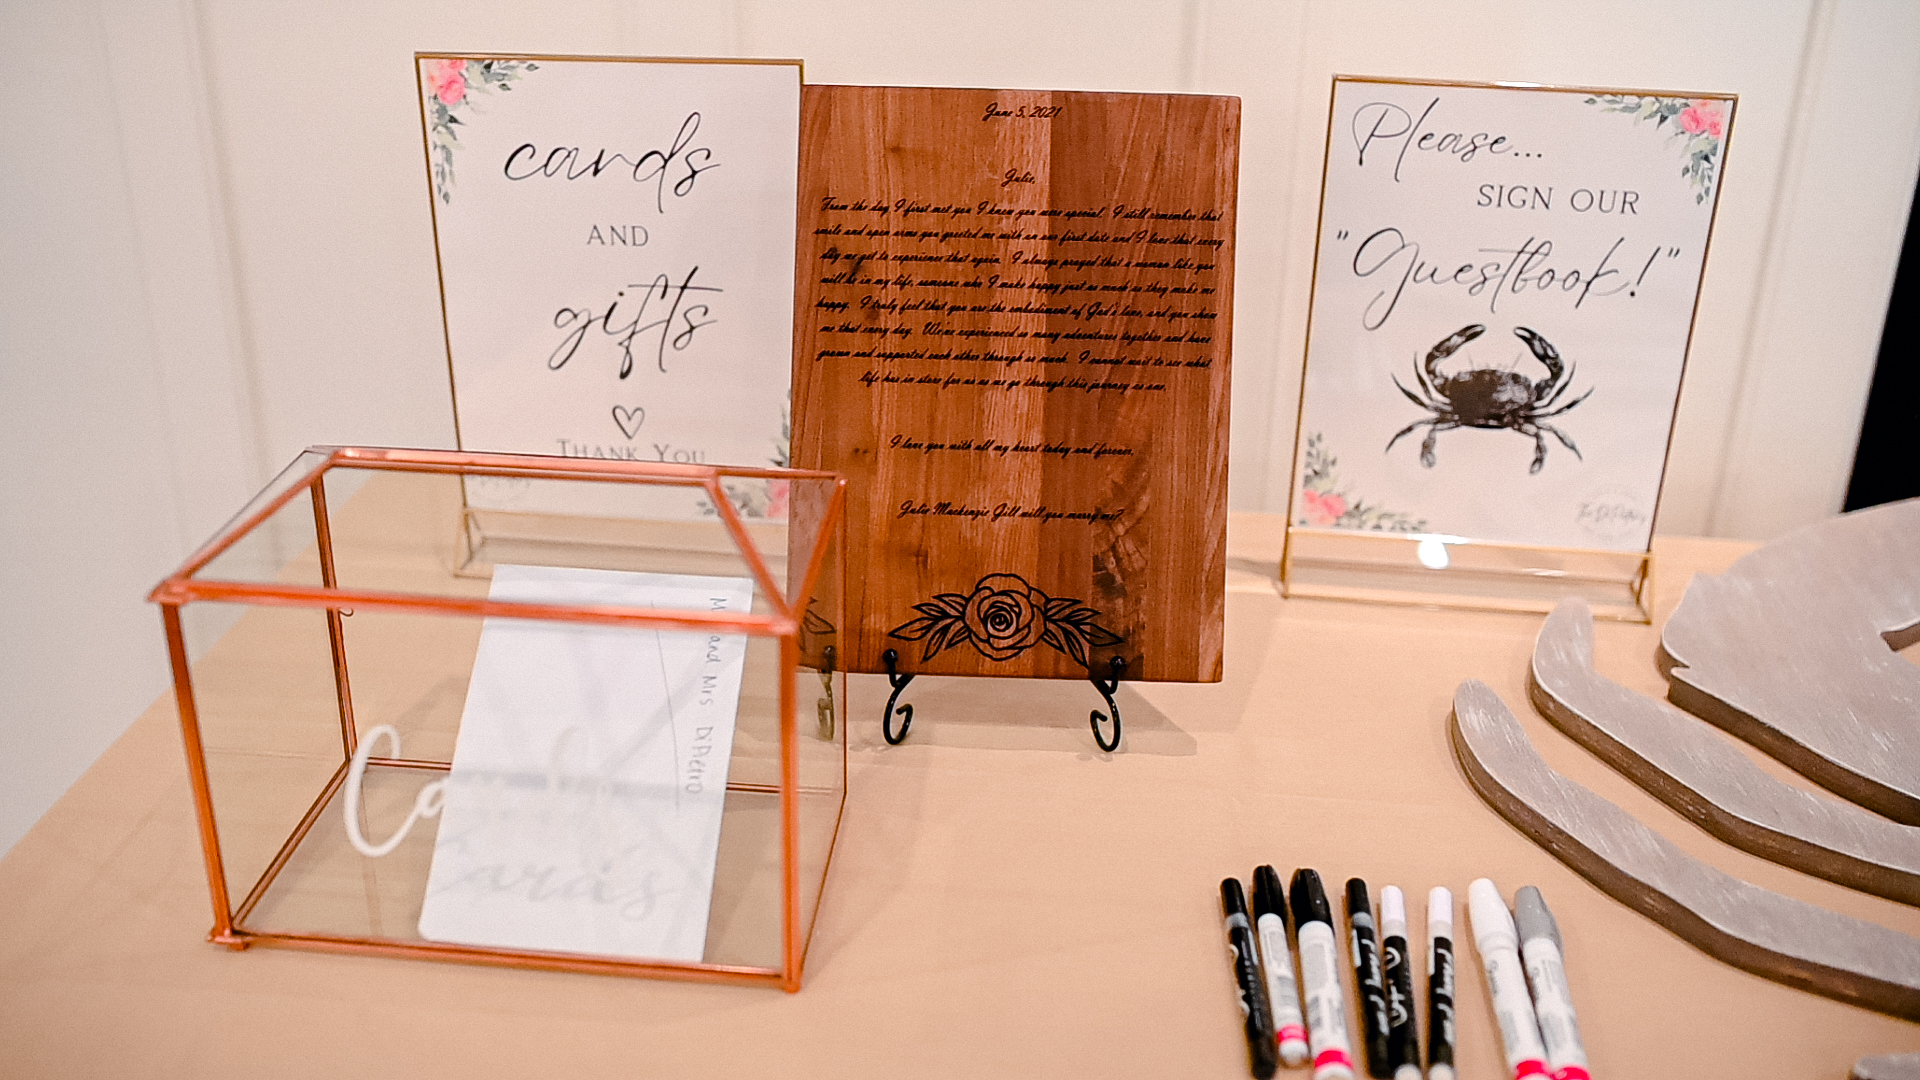 cards
AND
gifts
THANK YOU
June 5, 2021
Julie,
From the day I first met you I knew you were special. I still remember that
smile and open arms you greeted me with on our first date and I love that every
day we get to experience that again. I always prayed that a woman like you
will be in my life, someone who I make happy just as much as they make me
happy. I truly feel that you are the embodiment of God's love, and you show
me that every day. We've experienced so many adventures together and have
grown and supported each other through so much. I cannot wait to see what
life has in store for us as we go through this journey as one.
I love you with all my heart today and forever,
Julie Mackenzie Gill will you marry me?
Please...
SIGN OUR
"Guestbook!"
The DiPietros
and Mrs DiPietro
Cards